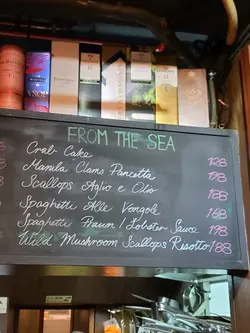 FROM THE SEA
Crab Cake 128
Manila Clams Pancetta 198
Scallops Aglio e Olio 188
Spaghetti Alle Vongole 168
Spaghetti Prawn / Lobster Sauce 198
Wild Mushroom Scallops Risotto 188